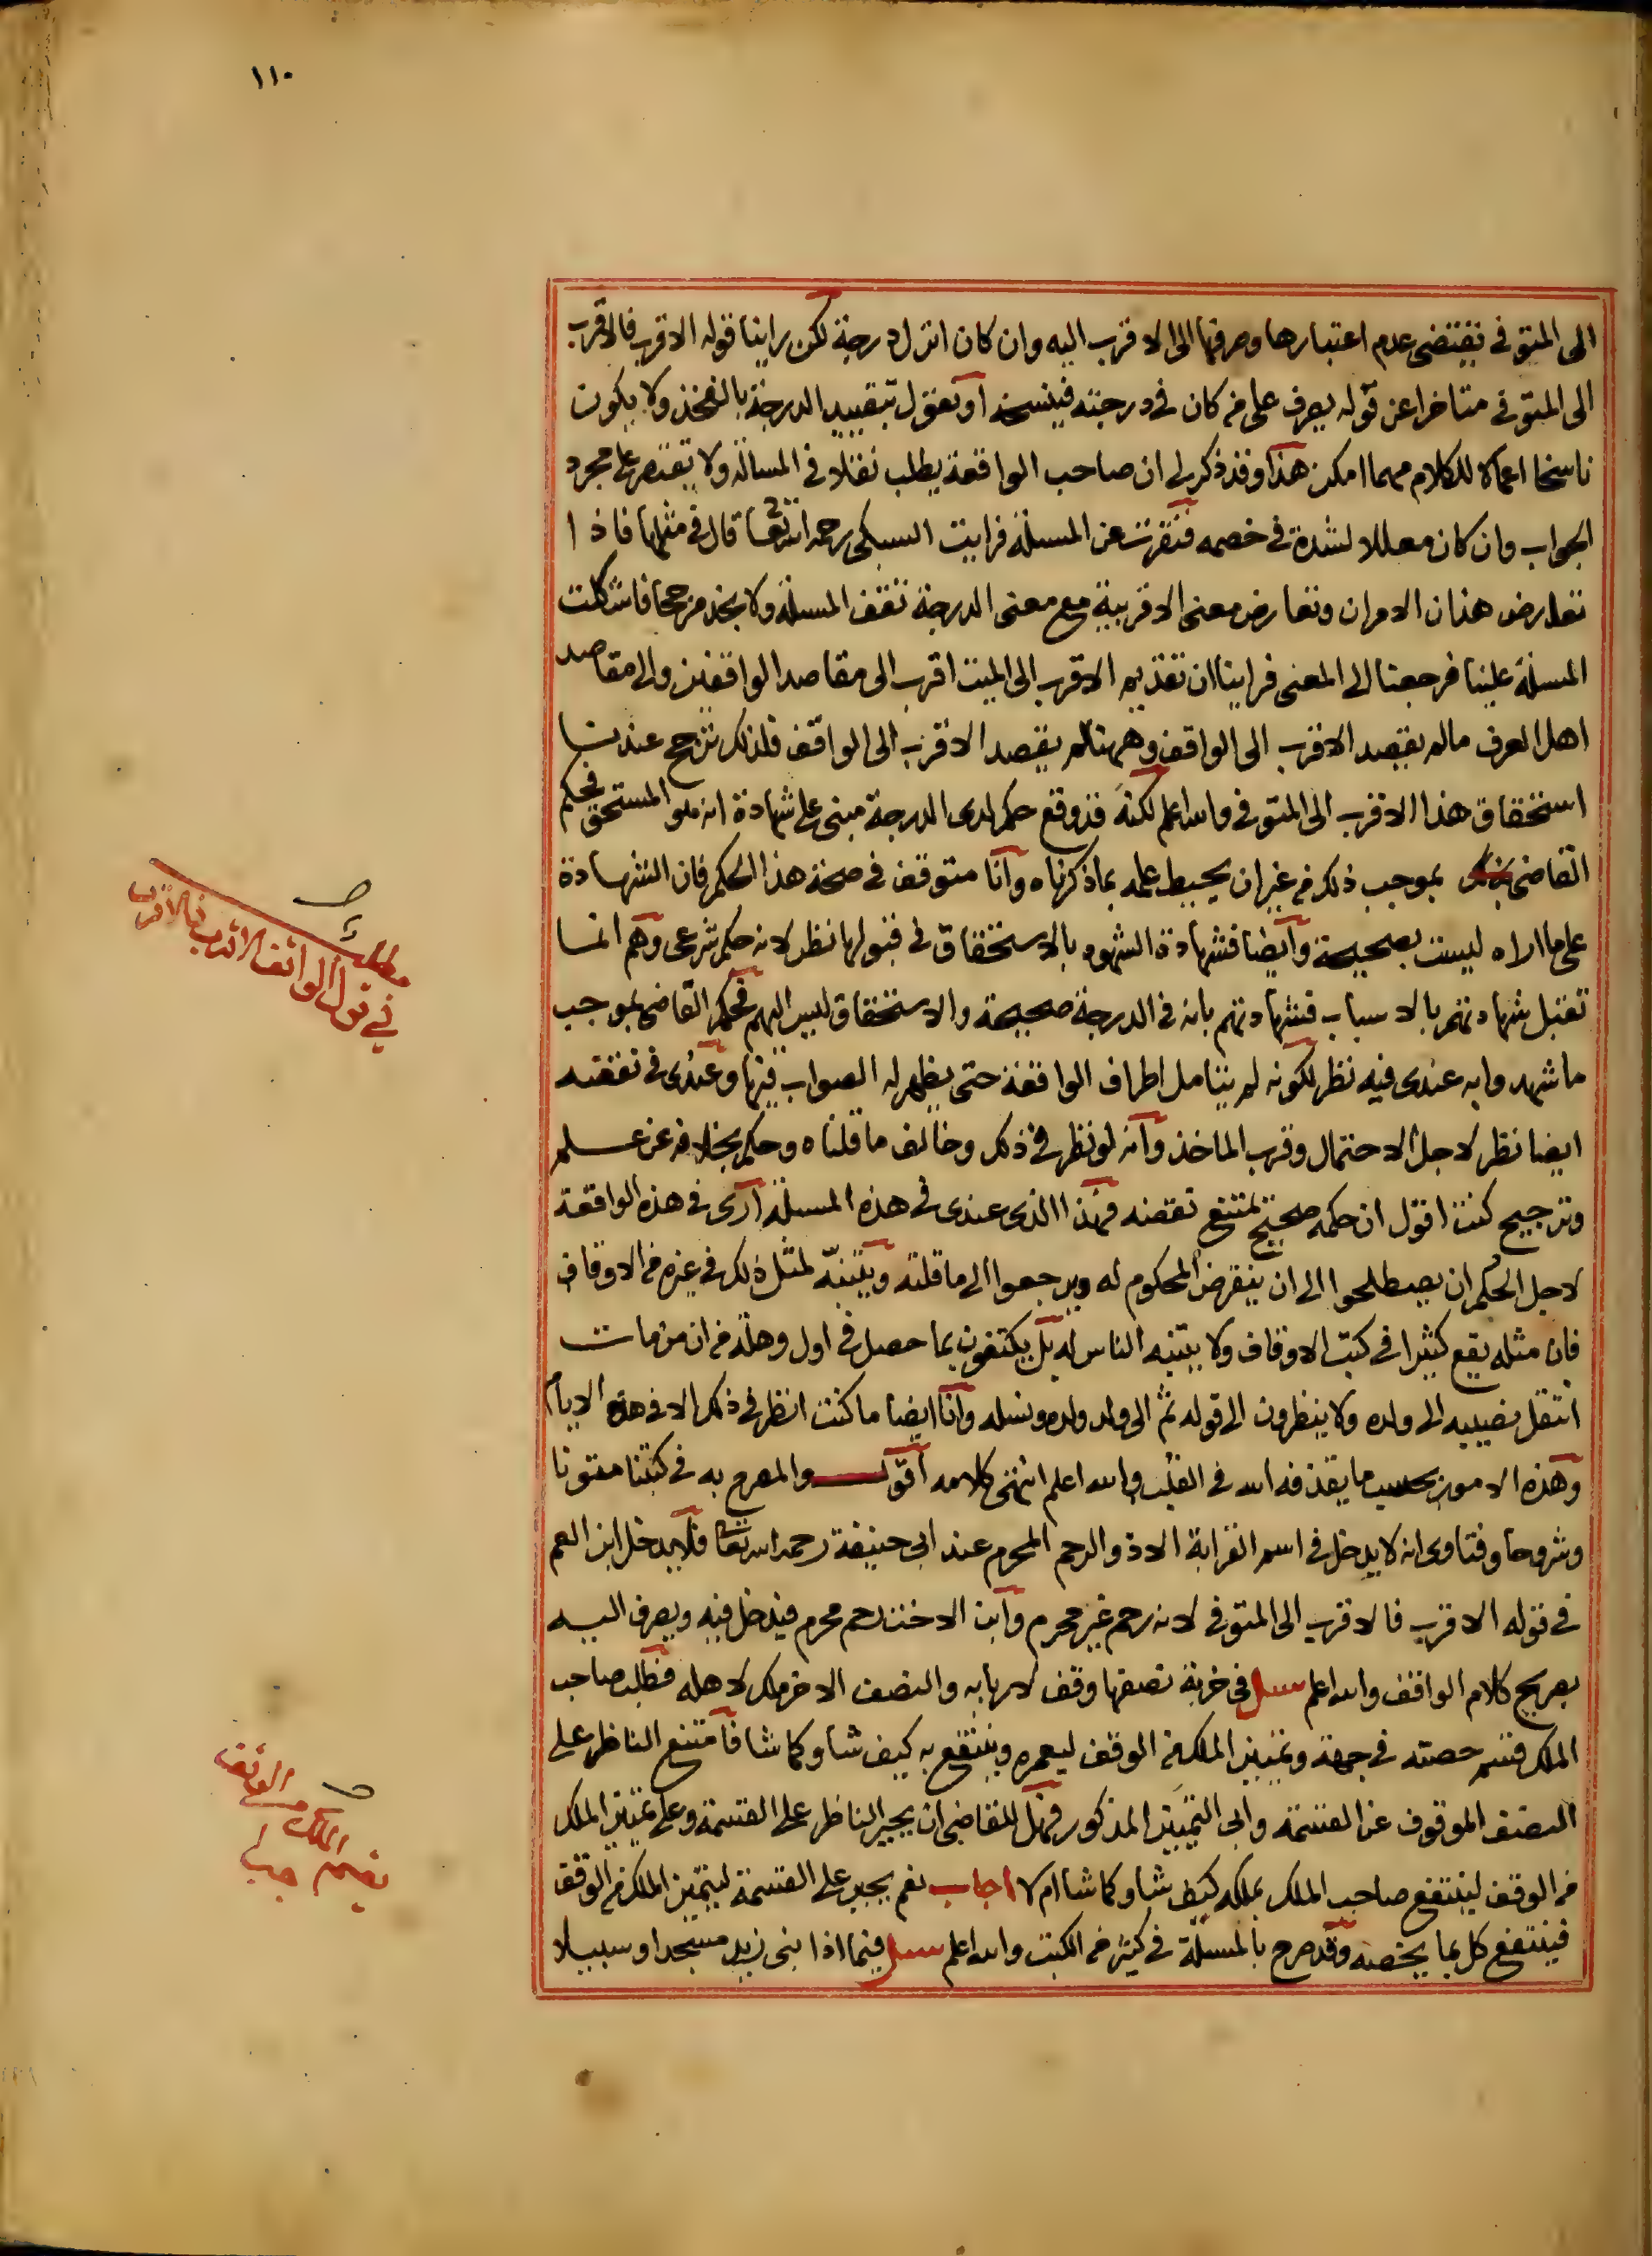 ١١٠
الى المتوفى فيقتضى عدم اعتبارها وصرفها الى الاقرب اليه وان كان انزل درجة لكن راينا قوله الاقرب فالاقرب
الى المتوفى متاخرا عن قوله يصرف على من كان فى درجته فينسخه او نقول بتقييد الدرجة بالفخذ ولا يكون
ناسخا اعمالا للكلام مهما امكن هذا وقد ذكر لى ان صاحب الواقعة يطلب نقلا فى المسالة ولا يقتصر على مجرد
الجواب وان كان معللا لشدة فى خصمه فنقرت عن المسئلة فرايت السبكى رحمه الله تعا قال فى مثلها فاذا
تعارض هذان الامران وتعارض معنى الاقربية مع معنى الدرجة تقف المسئلة ولا يجد مرجحا فاشكلت
المسئلة علينا فرجعنا الى المعنى فراينا ان تقديم الاقرب الى الميت اقرب الى مقاصد الواقفين والى مقاصد
اهل العرف ما لم يقصد الاقرب الى الواقف وههنا لم يقصد الاقرب الى الواقف فلذلك ترجح عندنا
استحقاق هذا الاقرب الى المتوفى والله اعلم لكنه قد وقع حكم لذى الدرجة مبنى على شهادة انه هو المستحق فحكم
القاضى بموجب ذلك من غير ان يحيط علمه بما ذكرناه وانا متوقف فى صحة هذا الحكم فان الشهادة
على ما اراه ليست بصحيحة وايضا فشهادة الشهود بالاستحقاق فى قبولها نظر لانه حكم شرعى وهم انما
تقبل شهادتهم بالاسباب فشهادتهم بانه فى الدرجة صحيحة والاستحقاق ليس اليهم فحكم القاضى بموجب
ما شهدوا به عندى فيه نظر لكونه لم يتامل اطراف الواقعة حتى يظهر له الصواب فيها وعندى فى نقضه
ايضا نظر لاجل الاحتمال وقرب الماخذ وانه لو نظر فى ذلك وخالف ما قلناه وحكم بخلافه عن علم
وترجيح كنت اقول ان حكمه صحيح يمتنع نقضه فهذا الذى عندى فى هذه المسئلة ارى فى هذه الواقعة
لاجل الحكم ان يصطلحوا الى ان ينقرض المحكوم له ويرجعوا الى ما قلته ويتنبه لمثل ذلك فى غيره من الاوقاف
فان مثله يقع كثيرا فى كتب الاوقاف ولا يتنبه الناس له بل يكتفون بما حصل فى اول وهلة من ان من مات
انتقل نصيبه الى ولده ولا ينظرون الى قوله ثم الى ولد ولده ونسله وانا ايضا ما كنت انظر فى ذلك الا فى هذه الايام
وهذه الامور بحسب ما يقذفه الله فى القلب والله اعلم انتهى كلامه اقول والمصرح به فى كتبنا متونا
وشروحا وفتاوى انه لا يدخل فى اسم القرابة الا ذو الرحم المحرم عند ابى حنيفة رحمه الله تعا فلا يدخل ابن العم
فى قوله الاقرب فالاقرب الى المتوفى لانه رحم غير محرم وابن الاخت رحم محرم فيدخل فيه ويصرف اليه
بصريح كلام الواقف والله اعلم سئل فى خربة نصفها وقف لاربابه والنصف الاخر ملك لاهله فطلب صاحب
الملك قسم حصته فى جهة وتمييز الملك من الوقف ليعمره وينتفع به كيف شا وكما شا فامتنع الناظر على
النصف الموقوف عن القسمة وابى التمييز المذكور فهل للقاضى ان يجبر الناظر على القسمة وعلى تمييز الملك
من الوقف لينتفع صاحب الملك بملكه كيف شا وكما شا ام لا اجاب نعم يجبر على القسمة ليتميز الملك من الوقف
فينتفع كل بما يخصه وقد صرح بالمسئلة فى كثير من الكتب والله اعلم سئل فيما اذا بنى زيد مسجدا وسبيلا
مطلب
فى قول الواقف الاقرب فالاقرب
الملك من الوقف
يقسم جبرا